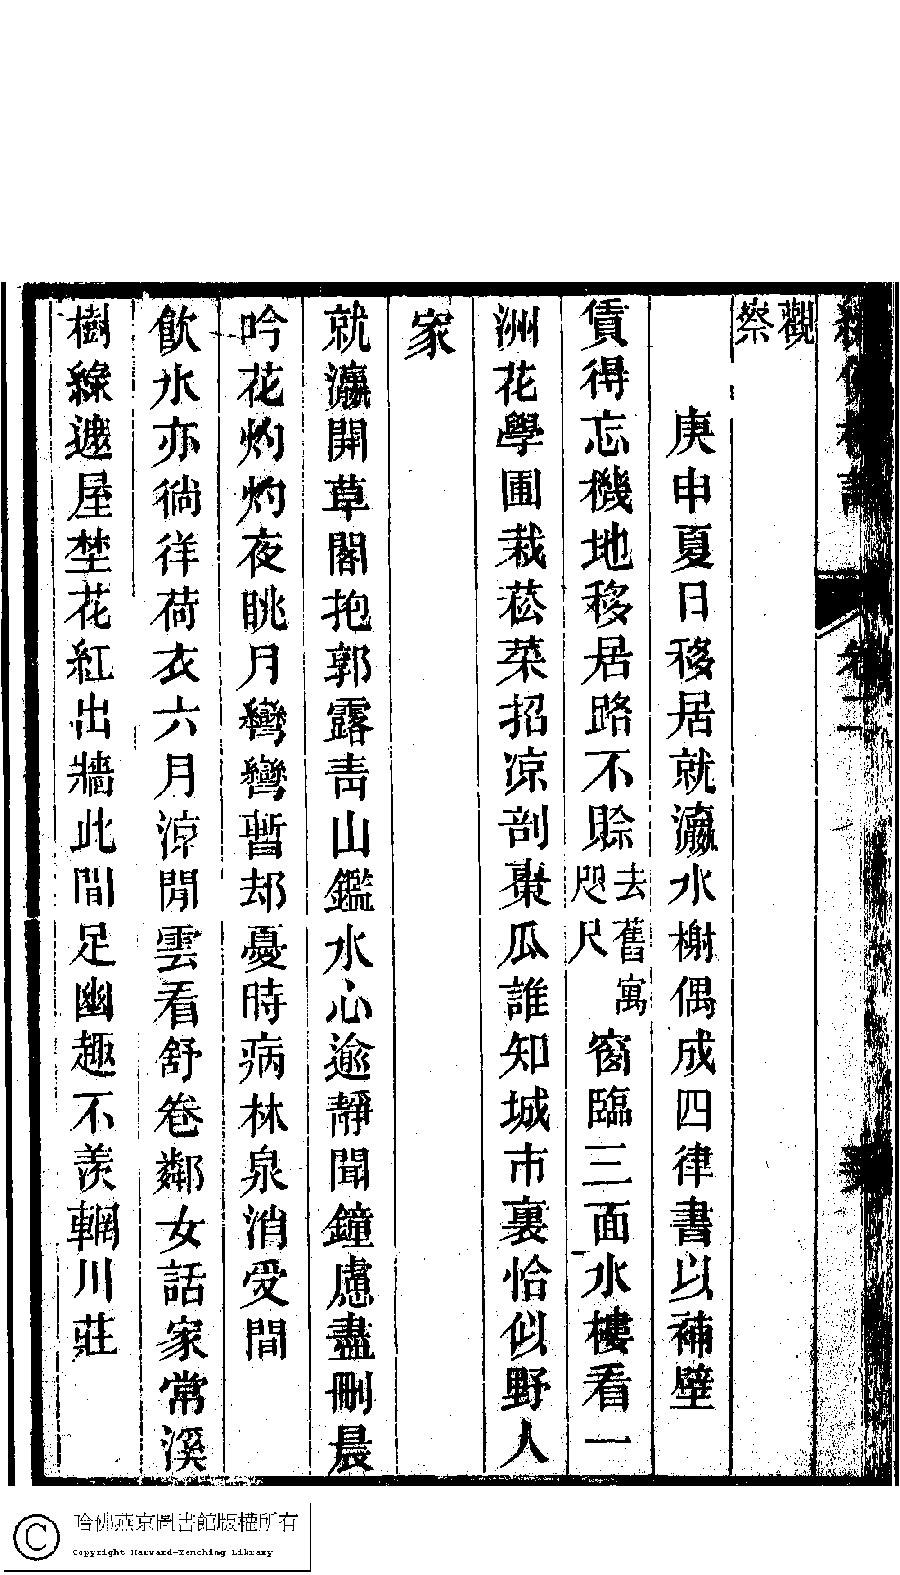 卷二
觀察
庚申夏日移居就瀛水榭偶成四律書以補壁
賃得忘機地移居路不賒去舊寓咫尺窗臨三面水樓看一
洲花學圃栽菘菜招凉剖棗瓜誰知城市裏恰似野人
家
就瀛開草閣抱郭露青山鑑水心逾靜聞鐘慮盡刪晨
吟花灼灼夜眺月彎彎暫却憂時病林泉消受間
飲水亦徜徉荷衣六月涼閒雲看舒卷鄰女話家常溪
樹綠遮屋埜花紅出牆此間足幽趣不羨輞川莊
哈佛燕京圖書館版權所有
Copyright Harvard-Yenching Library